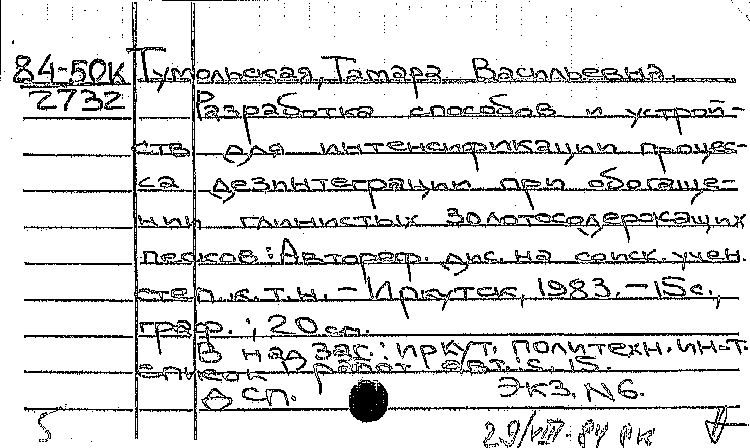 84-50К Тумольская, Тамара Васильевна.
2732 Разработка способов и устрой-
ств для интенсификации процес-
са дезинтеграции при обогаще-
нии глинистых золотосодержащих
песков: Автореф. дис. на соиск. учен.
степ. к.т.н. - Иркутск, 1983. - 15 с.,
граф.; 20 см.
В надзаг.: Иркут. политехн. ин-т.
Список работ авт. с. 15.
ДСП. Экз. N6.
29/VIII-84